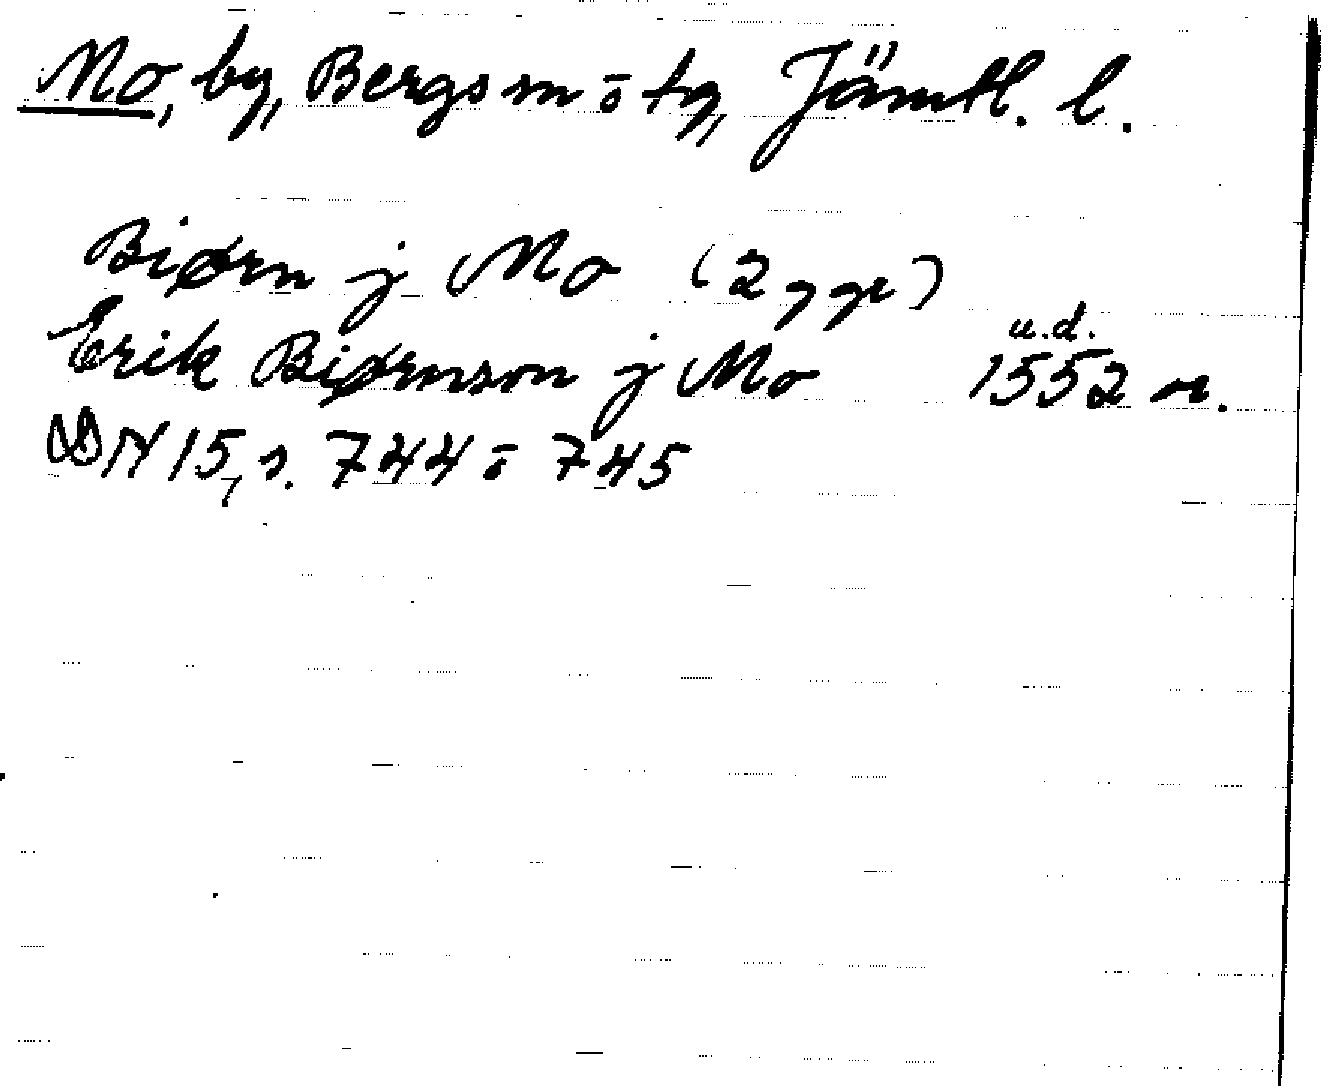 Mo, by, Bergs sn o tg, Jämtl. l.
Biørn j Mo (2 ggr)
u.d.
Erik Biørnson j Mo 1552 or.
DN 15, s. 744 o 745